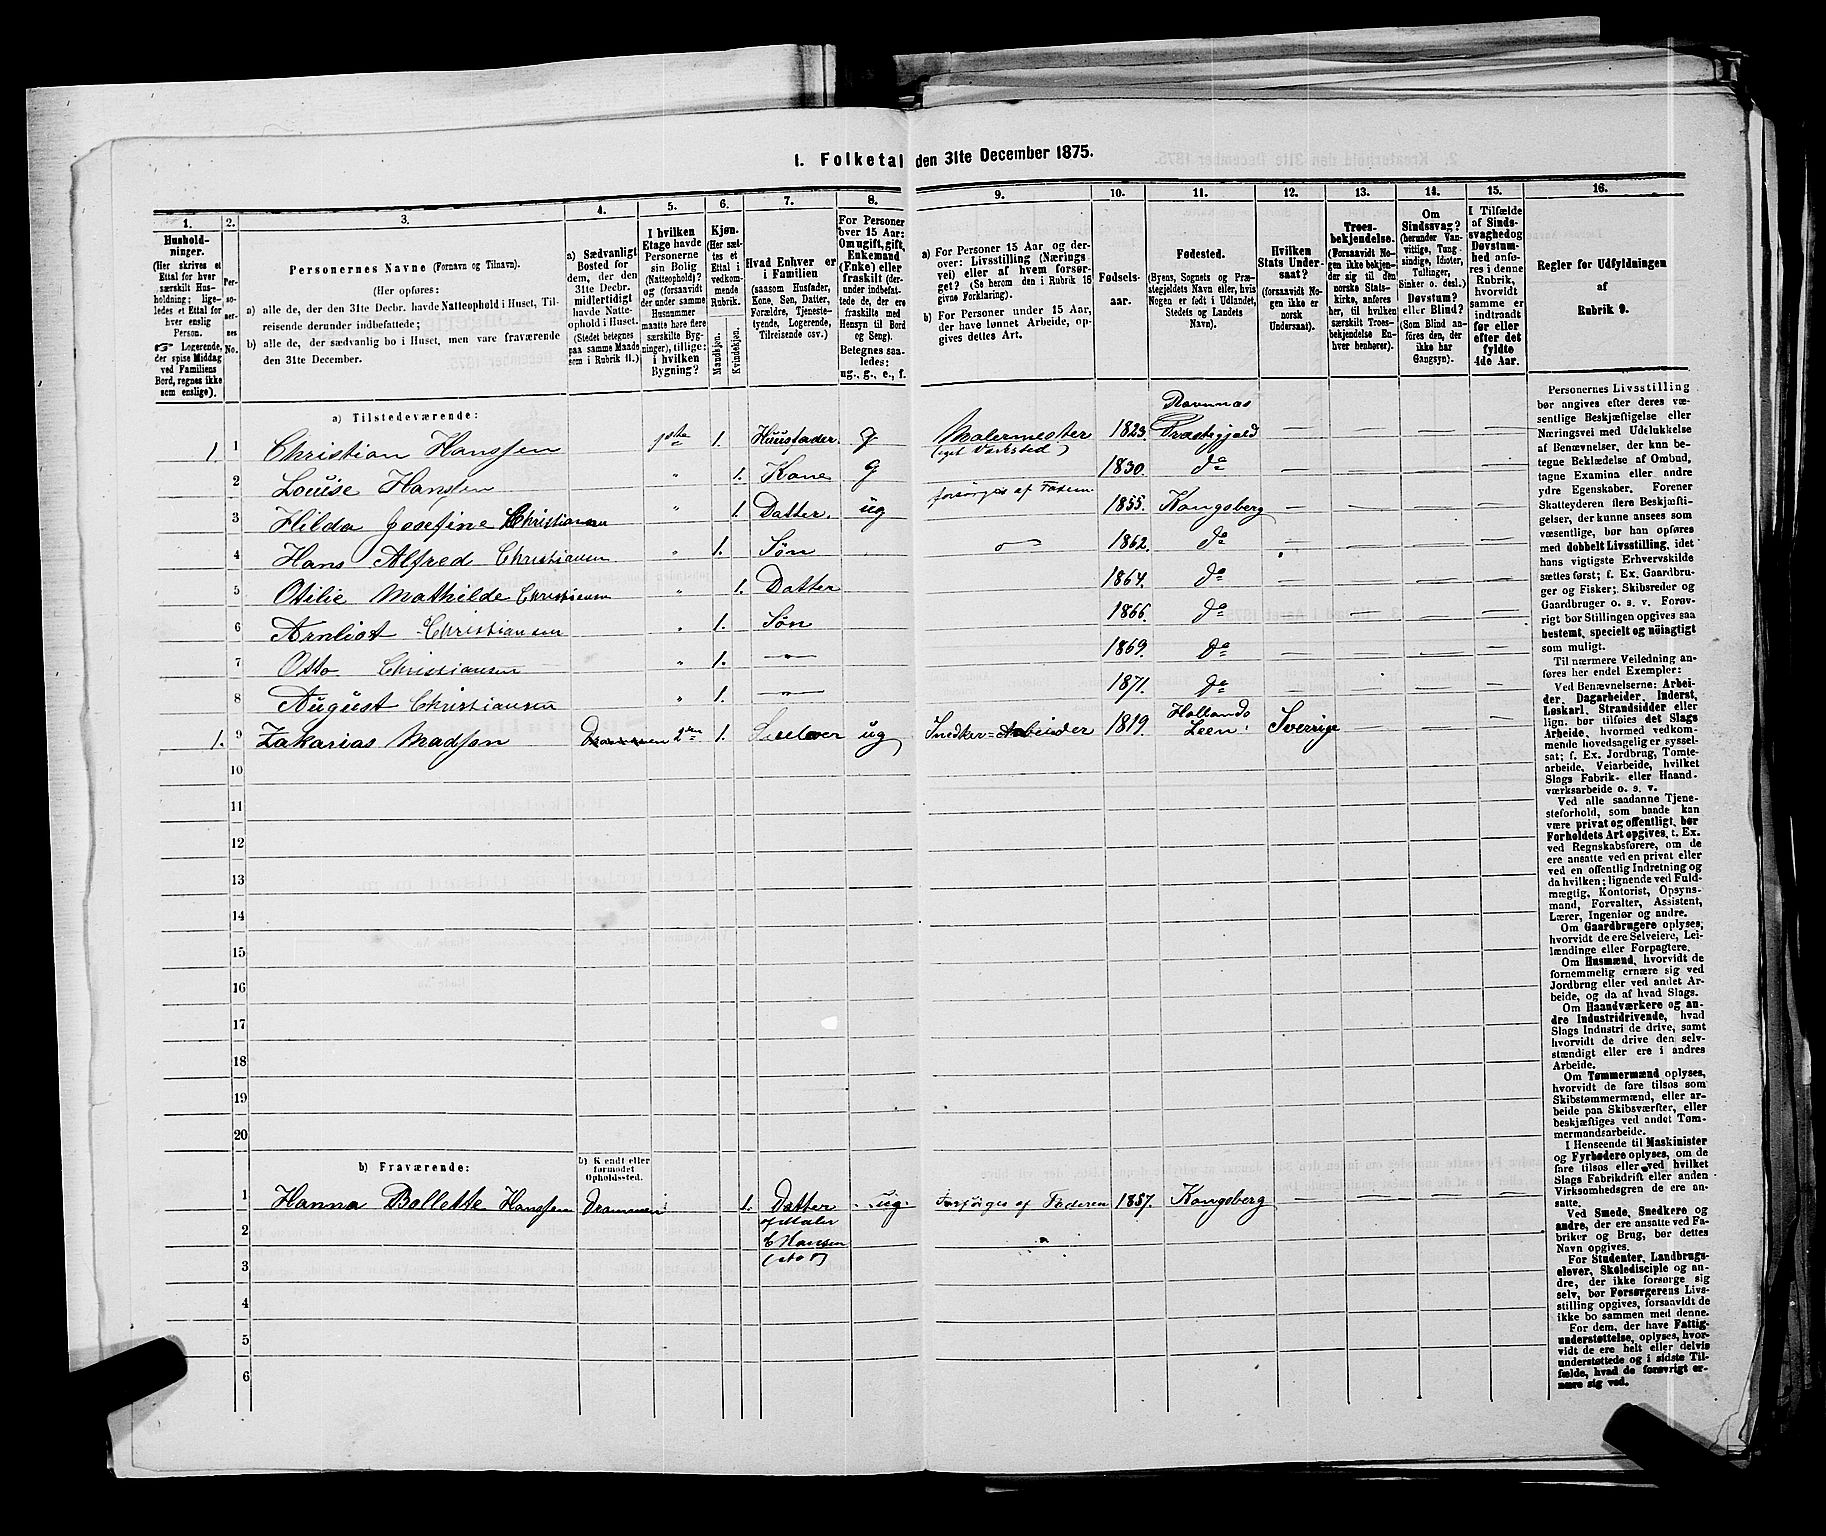 1. Folketal den 31te December 1875.
1.
Hushold-
ninger.
(Her skrives et
Ettal for hver
særskilt Hus-
holdning; lige-
ledes et Ettal for
hver enslig
Person.
☞ Logerende,
der spise Middag
ved Familiens
Bord, regnes ikke
som enslige).
2.
Per-
so-
ner-
nes
No.
3.
Personernes Navne (Fornavn og Tilnavn).
(Her opføres:
a) alle de, der den 31te Decbr. havde Natteophold i Huset, Til-
reisende derunder indbefattede;
b) alle de, der sædvanlig bo i Huset, men vare fraværende
den 31te December.
4.
a) Sædvanligt
Bosted for
dem, der den
31te Decbr.
midlertidigt
havde Natte-
ophold i Huset.
(Stedet betegnes
paa samme Maade
som i Rubrik 11.)
5.
I hvilken
Etage havde
Personerne
sin Bolig
(Natteophold)?
og (forsaavidt
der under samme
Husnummer
maatte høre flere
særskilte Byg-
ninger), tillige:
i hvilken
Bygning?
6.
Kjøn.
(Her sæt-
tes et
Ettal i
vedkom-
mende
Rubrik.
Mandkjøn.
Kvindekjøn.
7.
Hvad Enhver er
i Familien
(saasom Husfader,
Kone, Søn, Datter,
Forældre, Tjeneste-
tyende, Logerende,
Tilreisende osv.)
8.
For Personer
over 15 Aar:
Om ugift, gift,
Enkemand
(Enke) eller
fraskilt (der-
under indbefat-
tede de, der ere
fraskilte med
Hensyn til Bord
og Seng).
Betegnes saa-
ledes:
ug., g., e., f.
9.
a) For Personer 15 Aar og der-
over: Livsstilling (Nærings-
vei) eller af hvem forsør-
get? (Se herom den i Rubrik 16
givne Forklaring).
b) For Personer under 15 Aar,
der have lønnet Arbeide, op-
gives dettes Art.
10.
Fødsels-
aar.
11.
Fødested.
(Byens, Sognets og Præ-
stegjeldets Navn eller, hvis
Nogen er født i Udlandet,
Stedets og Landets
Navn).
12.
Hvilken
Stats Under-
saat?
(forsaavidt No-
gen ikke er
norsk
Undersaat).
13.
Troes-
bekjendelse.
(Forsaavidt No-
gen ikke bekjen-
der sig til den
norske Stats-
kirke, anføres
her, til hvilken
særskilt Troes-
bekjendelse En-
hver henhører).
14.
Om
Sindssvag?
(herunder Van-
vittige, Tung-
sindige, Idioter,
Tullinger,
Sinker o. desl.)
Døvstum?
eller Blind?
(Som Blind an-
føres den, der
ikke har
Gangsyn).
15.
I Tilfælde
af Sinds-
svaghed og
Døvstum-
hed anfø-
res i denne
Rubrik,
hvorvidt
samme er
indtraadt
før eller
efter det
fyldte
4de Aar.
16.
Regler for Udfyldningen
af
Rubrik 9.
a) Tilstedeværende:
1 1 Christian Hanssen 1ste 1. Huusfader g Malermester (eget Værksted) 1823. Ravnnæs Præstegjeld
2 Louise Hanssen " 1. Kone g 1830. do
3 Hilda Josefine Christiansen " 1. Datter. ug forsørges af Faderen 1855. Kongsberg
4 Hans Alfred Christiansen " 1. Søn 1862. do
5 Otilie Mathilde Christiansen " 1. Datter 1864. do
6 Arnliot Christiansen " 1. Søn 1866. do
7 Otto Christiansen " 1. " 1869. do
8 August Christiansen " 1. " 1871. do
1. 9 Zakarias Madsen Drammen 2den 1. ug Snedker=Arbeider 1819. Hollands Leen Sverige
10
11
12
13
14
15
16
17
18
19
20
b) Fraværende:
b) Kjendt eller
formodet
Opholdssted.
1 Hanna Bollette Hanssen Drammen 1. Datter ug Forsørges af Faderen 1857. Kongsberg
2 af Maler
C Hansen
3
4
5
6
Personernes Livsstilling
bør angives efter deres væ-
sentlige Beskjæftigelse eller
Næringsvei med Udelukkelse
af Benævnelser, der kun be-
tegne Beklædelse af Ombud,
tagne Examina eller andre
ydre Egenskaber. Forener
Skatteyderen flere Beskjæfti-
gelser, der kunne ansees som
væsentlige, bør han opføres
med dobbelt Livsstilling, idet
hans vigtigste Erhvervskilde
sættes først; f. Ex. Gaardbru-
ger og Fisker; Skibsreder og
Gaardbruger o. s. v. Forøv-
rigt bør Stillingen opgives saa
bestemt, specielt og nöiagtigt
som muligt.
Til nærmere Veiledning an-
føres her endel Exempler:
Ved Benævnelserne: Arbei-
der, Dagarbeider, Inderst,
Løskarl, Strandsidder eller
lign. bør tilføies det Slags
Arbeide, hvormed vedkom-
mende hovedsagelig er syssel-
sat; f. Ex. Jordbrug, Tomte-
arbeide, Veiarbeide, hvilket
Slags Fabrik- eller Haand-
værksarbeide o. s. v.
Ved alle saadanne Tjene-
steforhold, som baade kan
være privat og offentligt, bør
Forholdets Art opgives, t. Ex.
ved Regnskabsførere, om de
ere ansatte ved en privat eller
ved en offentlig Indretning og
da hvilken; lignende ved Fuld-
mægtig, Kontorist, Opsyns-
mand, Forvalter, Assistent,
Lærer, Ingeniør og andre.
Om Gaardbrugere oplyses,
hvorvidt de ere Selveiere, Lei-
lændinge eller Forpagtere.
Om Husmænd, hvorvidt de
fornemmelig ernære sig ved
Jordbrug eller ved andet Ar-
beide, og da af hvad Slags.
Om Haandværkere og an-
dre Industridrivende, hvad
Slags Industri de drive, samt
hvorvidt de drive den selv-
stændigt eller ere i andres
Arbeide.
Om Tømmermænd oplyses,
hvorvidt de fare tilsøs som
Skibstømmermænd, eller ar-
beide paa Skibsværfter, eller
beskjæftiges ved andet Tøm-
mermandsarbeide.
I Henseende til Maskinister
og Fyrbødere oplyses, om de
fare tilsøs eller ved hvilket
Slags Fabrikdrift eller anden
Virksomhedsgren de ere an-
satte.
Ved Smede, Snedkere og
andre, der ere ansatte ved Fa-
briker og Brug, bør dettes
Navn opgives.
For Studenter, Landbrugs-
elever, Skoledisciple og an-
dre, der ikke forsørge sig
selv, bør Forsørgerens Livs-
stilling opgives, forsaavidt de
ikke bo sammen med denne.
For dem, der have Fattig-
understøttelse, oplyses, hvor-
vidt de ere helt eller delvis
understøttede og i sidste Til-
fælde, hvad de forøvrigt er-
nære sig ved.